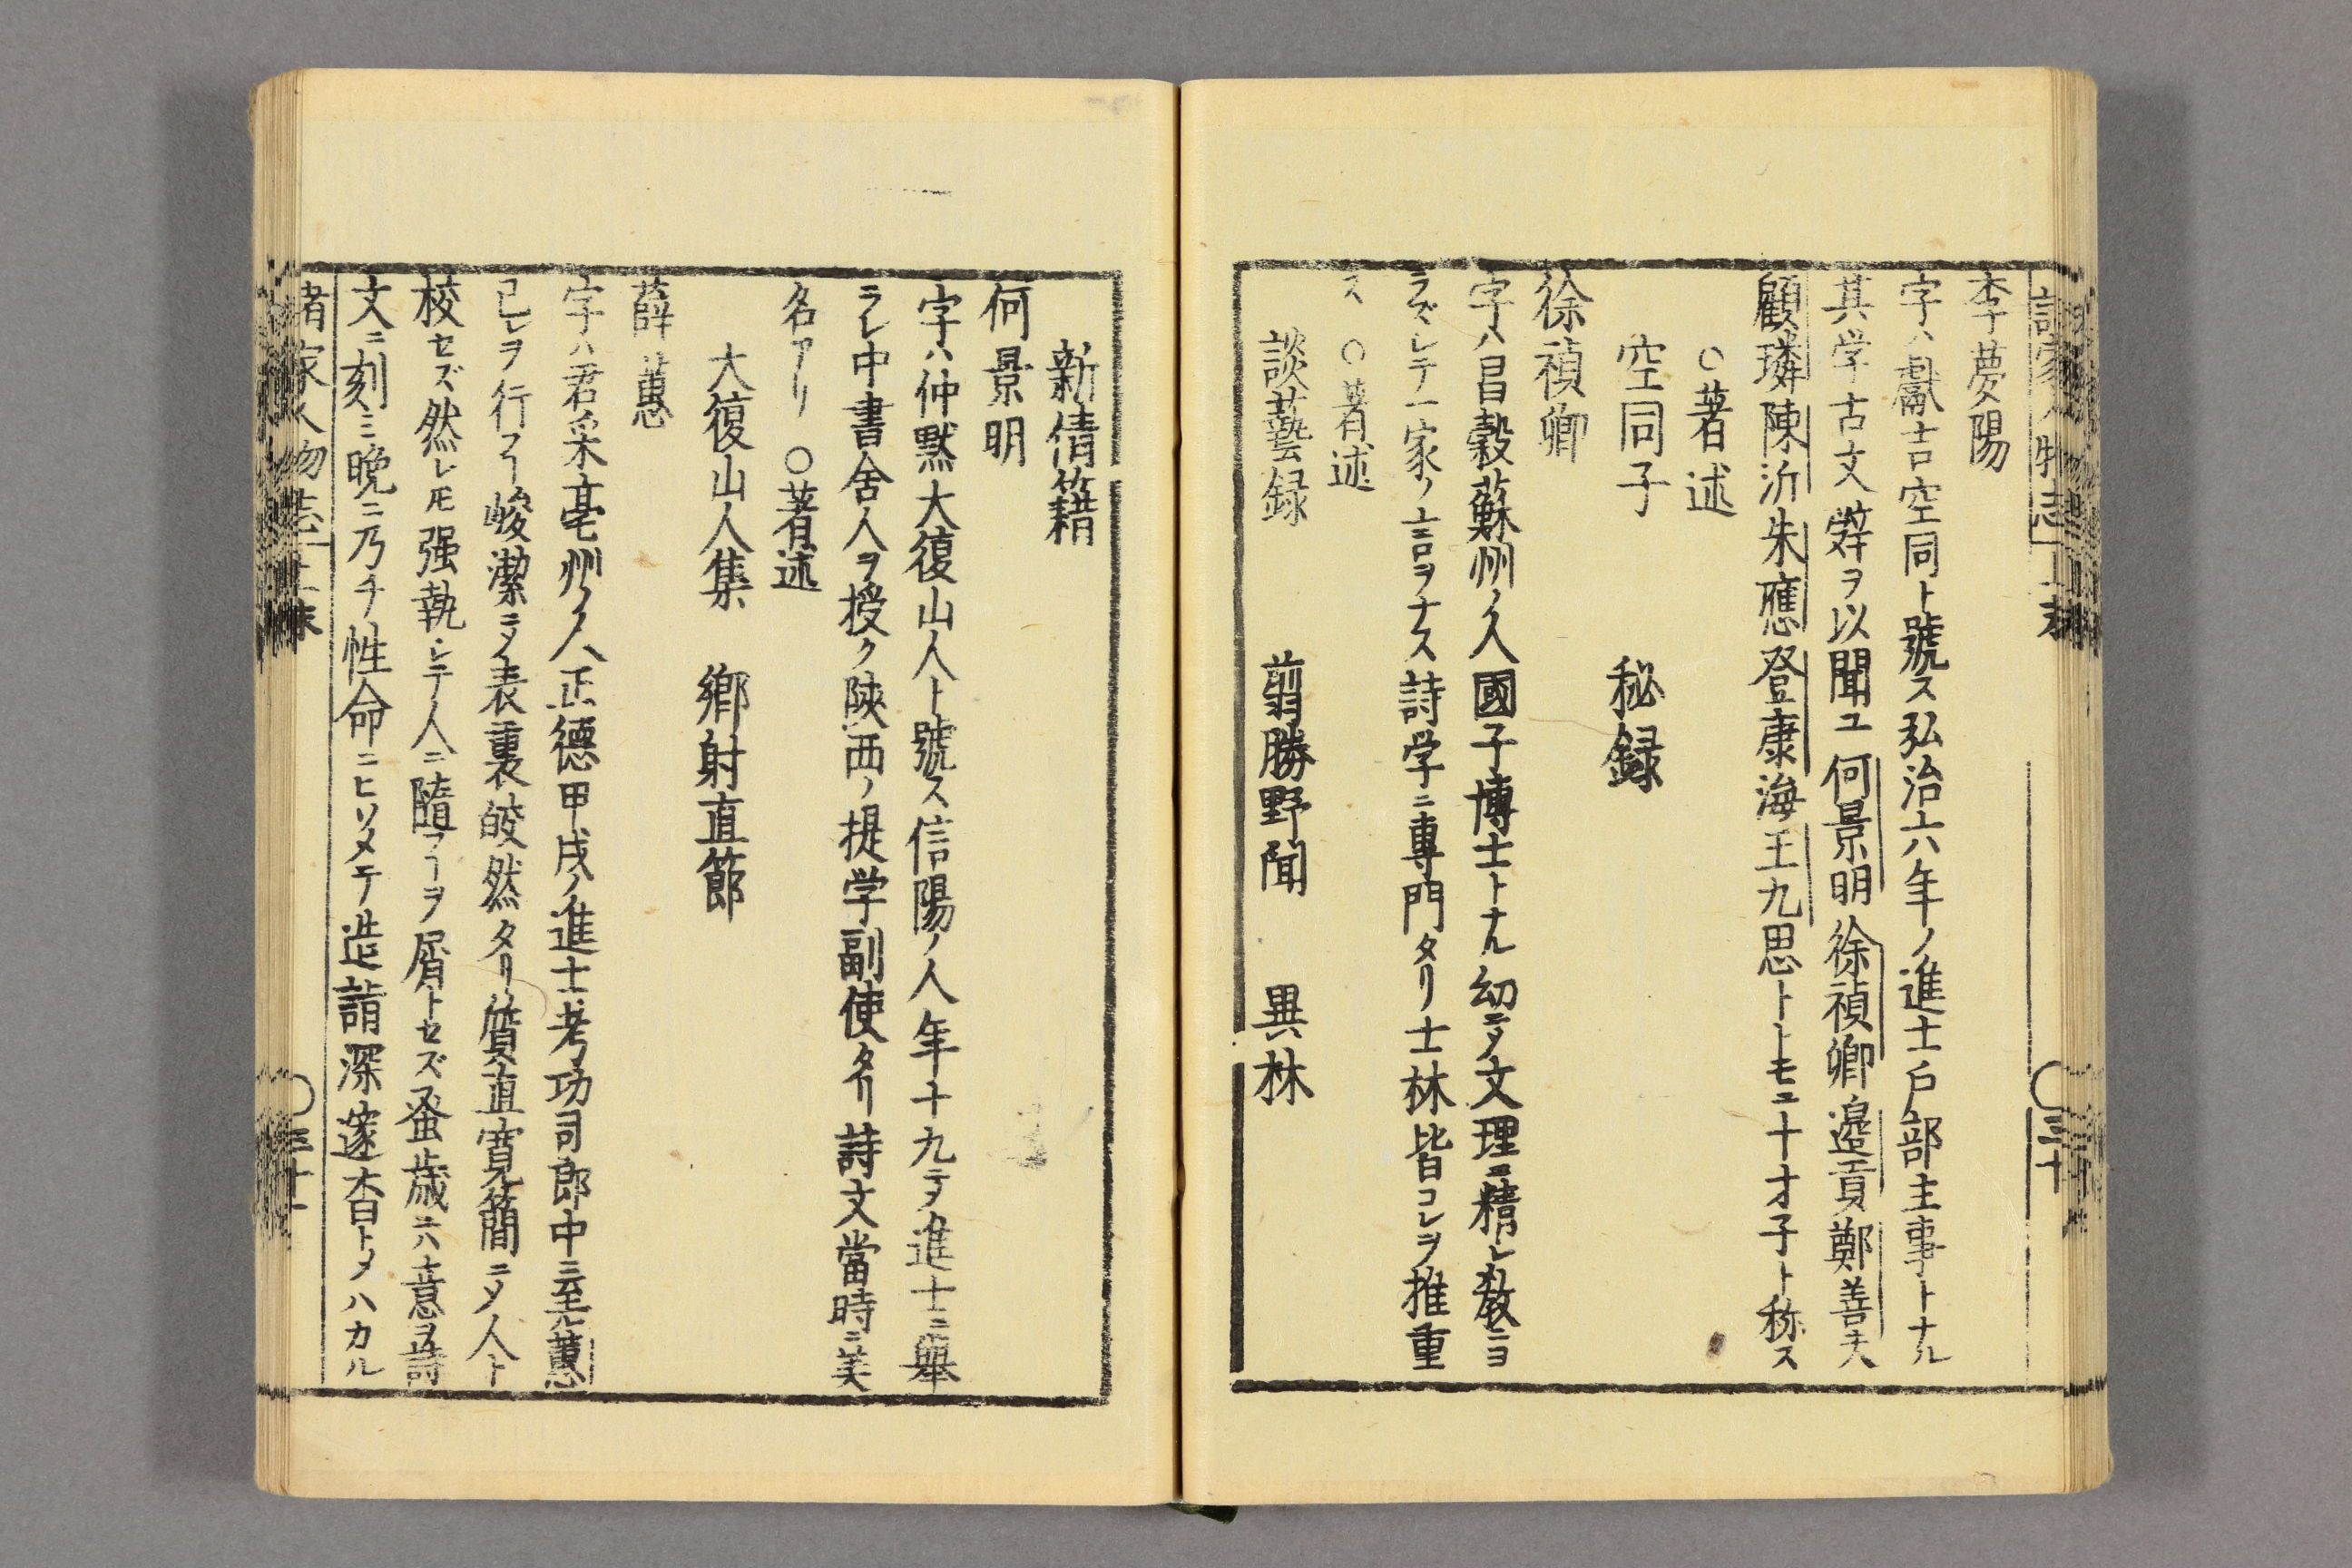 李夢陽
字ハ獻吉空同ト號ス弘治六年ノ進士戸部主事トナル
其学古文辞ヲ以聞ユ何景明徐禎卿邉貢鄭善夫
顧璘陳沂朱應登康海王九思トトモニ十才子ト称ス
○著述
空同子 秘録
徐禎卿
字ハ昌穀蘇州ノ人國子博士トナル幼ニ〆文理ニ精シ教ニヨ
ラズシテ一家ノ言ヲナス詩学ニ專門タリ士林皆コレヲ推重
ス ○著述
談藝録 翦勝野聞 異林
新倩籍
何景明
字ハ仲黙大復山人ト號ス信陽ノ人年十九ニテ進士ニ舉
ラレ中書舍人ヲ授ク陝西ノ提学副使タリ詩文當時ニ美
名アリ ○著述
大復山人集 郷射直節
薛蕙
字ハ君采亳州ノ人正德甲戌ノ進士考功司郎中ニ至ル蕙
己レヲ行フ峻潔ニ〆表裏皎然タリ質直寛簡ニ〆人ト
校セズ然レ𪜈强執シテ人ニ隨フヿヲ屑トセズ蚤歳ニハ意ヲ詩
文ニ刻ミ晩ニ乃チ性命ニヒソメテ造詣深邃杳ト〆ハカル
諸家人物志